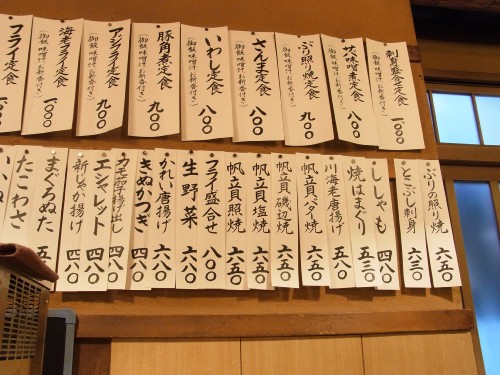 刺身盛合定食
(御飯 味噌汁 お新香付き)
一〇〇〇
サバ味噌煮定食
(御飯 味噌汁 お新香付き)
八〇〇
ぶり照り焼定食
(御飯 味噌汁 お新香付き)
九〇〇
さんま定食
(御飯 味噌汁 お新香付き)
八〇〇
いわし定食
(御飯 味噌汁 お新香付き)
八〇〇
豚角煮定食
(御飯 味噌汁 お新香付き)
九〇〇
アジフライ定食
(御飯 味噌汁 お新香付き)
九〇〇
海老フライ定食
(御飯 味噌汁 お新香付き)
一〇〇〇
フライ定食
(御飯 味噌汁 お新香付き)
一〇〇〇
ぶりの照り焼
六五〇
とこぶし刺身
六三〇
ししゃも
四八〇
焼はまぐり
五三〇
川海老唐揚げ
五八〇
帆立貝バター焼
六五〇
帆立貝磯辺焼
六五〇
帆立貝塩焼
六五〇
帆立貝照焼
六五〇
フライ盛合せ
八〇〇
生野菜
六五〇
かれい唐揚げ
六八〇
きぬかつぎ
四八〇
カモ茄子揚げ出し
四八〇
エシャレット
四八〇
新じゃが揚げ
四八〇
まぐろぬた
たこわさ